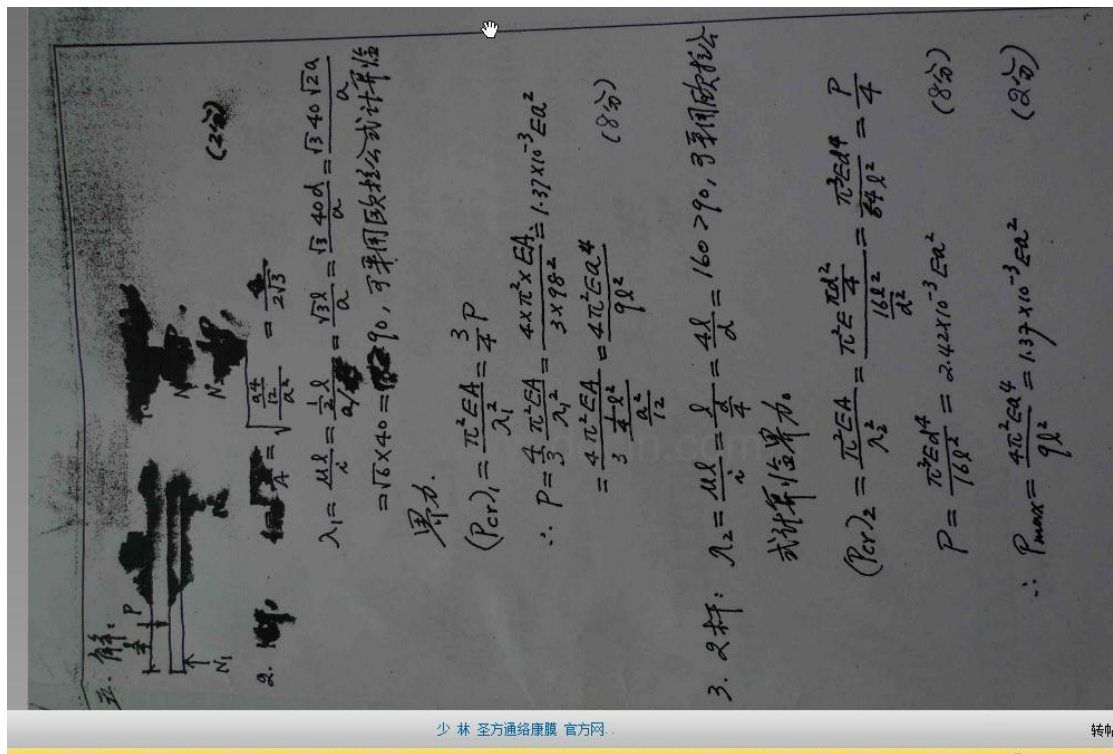 五. 解:
P
N₁
(2分)
2.
A = √((a⁴/12)/a²) = a/(2√3)
λ₁ = μl/i = ½l/(a/ = √3l/a = √3 40d/a = √3 40√2a/a
= √6×40 = 90, 可采用欧拉公式计算临
界力.
(Pcr)₁ = π²EA/λ₁² = ¾P
∴ P = 4/3 π²EA/λ₁² = 4×π²×EA/(3×98²) = 1.37×10⁻³Ea²
= 4π²EA/(3 (¼l²)/(a²/12)) = 4π²Ea⁴/9l² (8分)
3. 2杆: λ₂ = μl/i = l/(d/4) = 4l/d = 160 > 90, 可采用欧拉公
式计算临界力。
(Pcr)₂ = π²EA/λ₂² = π²E(πd²/4)/(16l²/d²) = π³Ed⁴/64l² = P/4
P = π³Ed⁴/16l² = 2.42×10⁻³Ea² (8分)
∴ Pmax = 4π²Ea⁴/9l² = 1.37×10⁻³Ea² (2分)
少 林 圣方通络康膜 官方网..
转帖